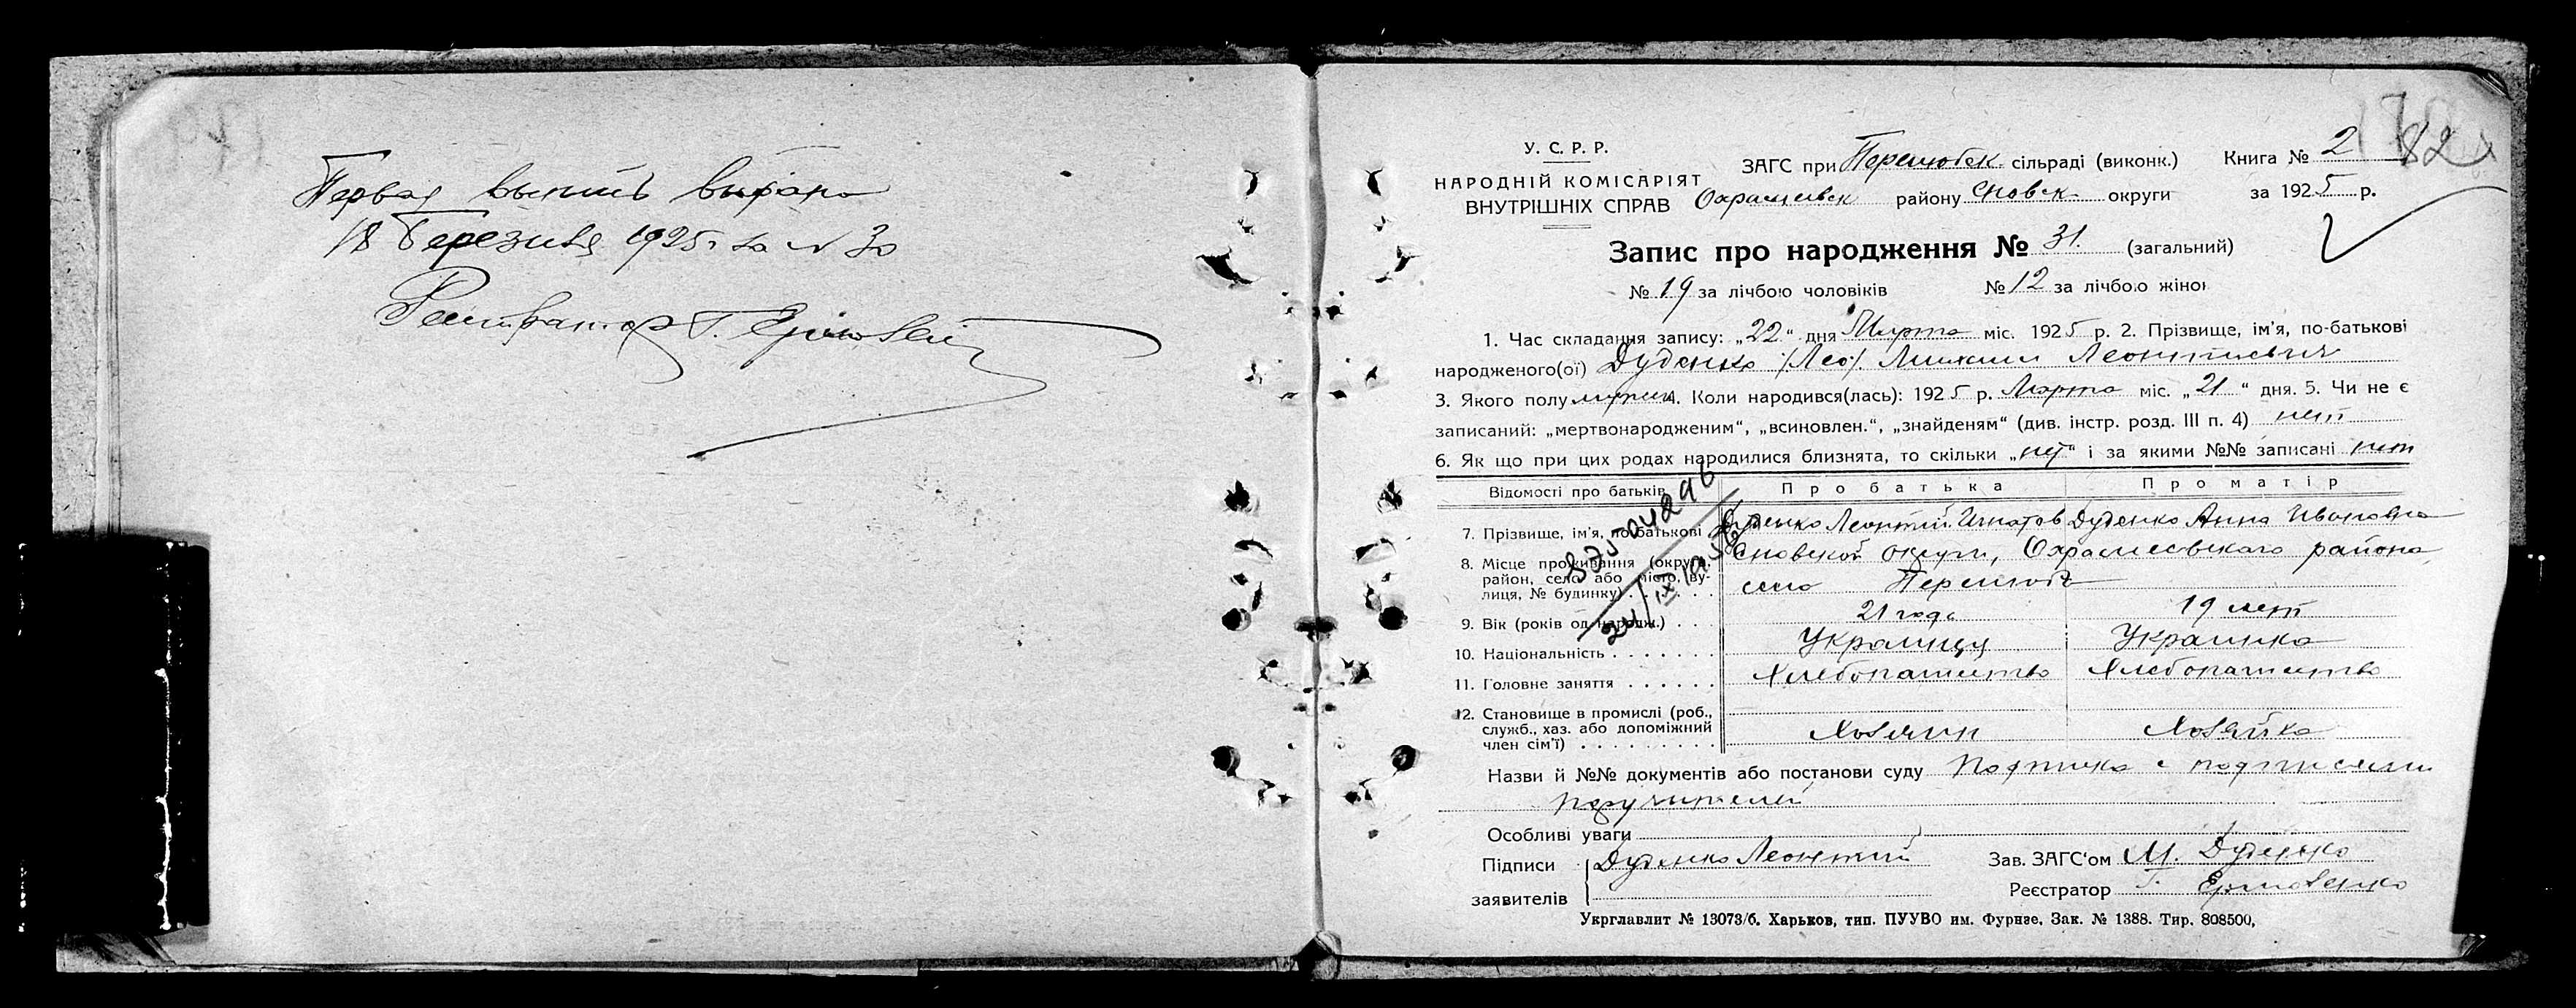 Первая выпись выдана
18 Березня 1925 г за N 30
Регистратор Г. Ермоленко
82
У. С. Р. Р.
НАРОДНІЙ КОМІСАРІЯТ
ВНУТРІШНІХ СПРАВ
ЗАГС при Перелюбск сільраді (виконк.) Книга № 2
району Сновск округи за 1925 р.
Запис про народження № 31. (загальний)
№ 19 за лічбою чоловіків № 12 за лічбою жінок
1. Час складання запису: „22“ дня Марта міс. 1925 р. 2. Прізвище, ім'я, по-батькові
народженого(ої) Дуденко Михаил Леонтиевич
3. Якого полу мужск 4. Коли народився(лась): 1925 р. Марта міс. „21“ дня. 5. Чи не є
записаний: „мертвонародженим“, „всиновлен.“, „знайденям“ (див. інстр. розд. III п. 4) нет
6. Як що при цих родах народилися близнята, то скільки „нет“ і за якими №№ записані нет
Відомості про батьків Про батька Про матір
7. Прізвище, ім'я, по-батькові Дуденко Леонтий Игнатов Дуденко Анна Ивановна
8. Місце проживання (округа, Сновской округи, района
район, село або місто, ву- село Перелюб
лиця, № будинку)
9. Вік (років од народж.) 21 года 19 лет
10. Національність Украинец Украинка
11. Головне заняття Хлебопашество Хлебопашество
12. Становище в промислі (роб.,
служб., хаз. або допоміжний Хозяин Хозяйка
член сім'ї)
Назви й №№ документів або постанови суду Подписка с подписями
поручителей
Особливі уваги
Підписи Дуденко Леонтий Зав. ЗАГС'ом М. Дуденко
заявителів Реєстратор Г. Ермоленко
Укрглавлит № 13073/б. Харьков, тип. ПУУВО им. Фурнзе, Зак. № 1388. Тир. 808500,